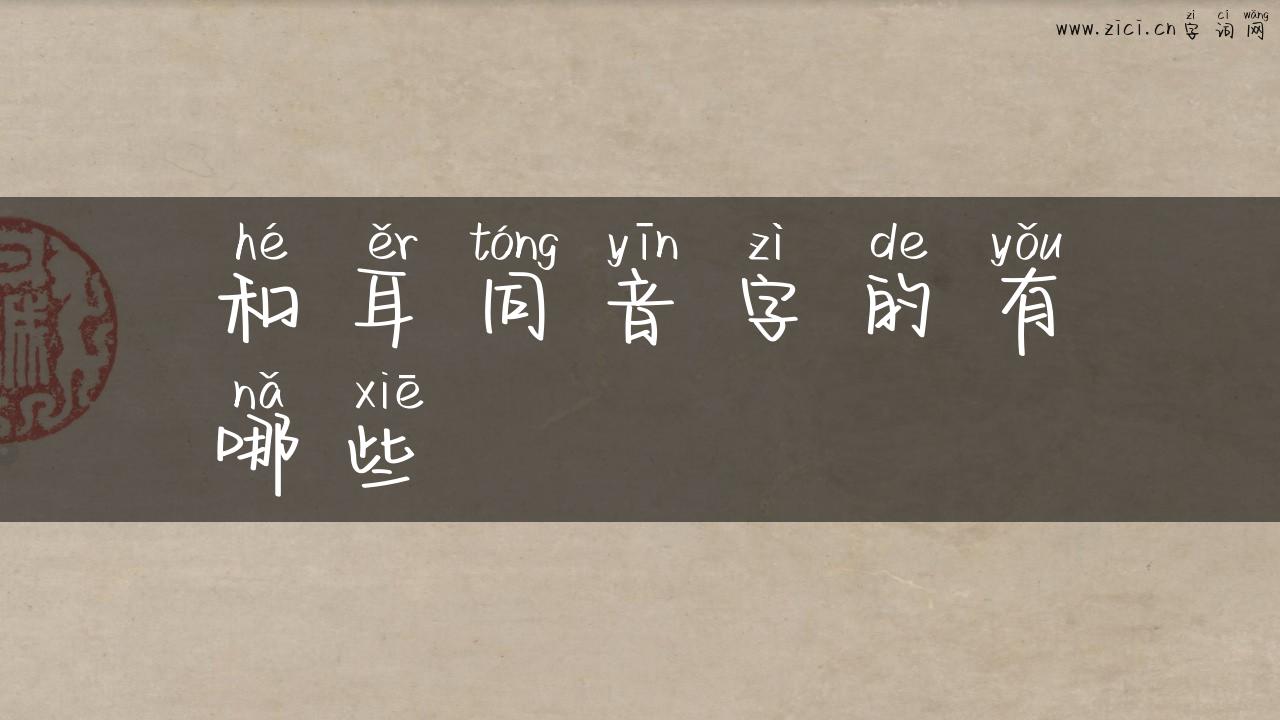 zì cí wǎng
www.zici.cn 字 词 网
hé ěr tóng yīn zì de yǒu
和 耳 同 音 字 的 有
nǎ xiē
哪 些